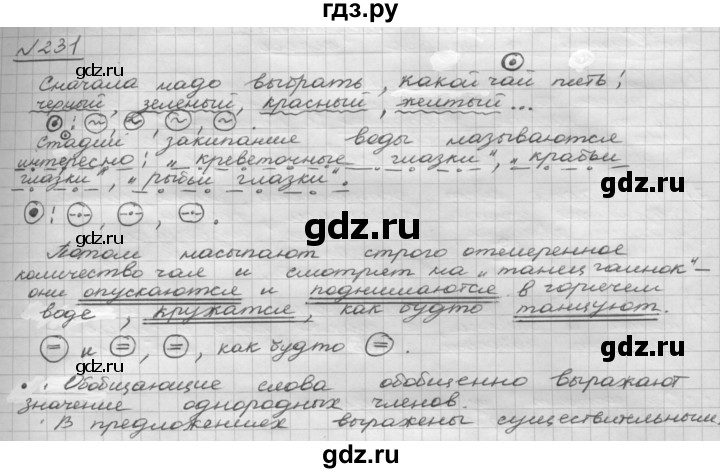 гдз.ру
№231
Сначала надо выбрать, какой чай пить:
черный, зеленый, красный, желтый...
Стадии закипания воды называются
интересно: „креветочные глазки“, „крабьи
глазки“, „рыбьи глазки“.
gdz.ru
Потом насыпают строго отмеренное
количество чая и смотрят на „танец чаинок“ –
они опускаются и поднимаются в горячем
воде, кружатся, как будто танцуют.
gdz.ru
и , , как будто .
Обобщающие слова обобщенно выражают
значение однородных членов.
В предложениях выражены существительными,
gdz.ru
gdz.ru
gdz.ru
gdz.ru